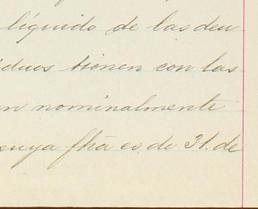 líquido de las deu
íduos tienen con las
an nominalmente
cuya fha es de 31. de